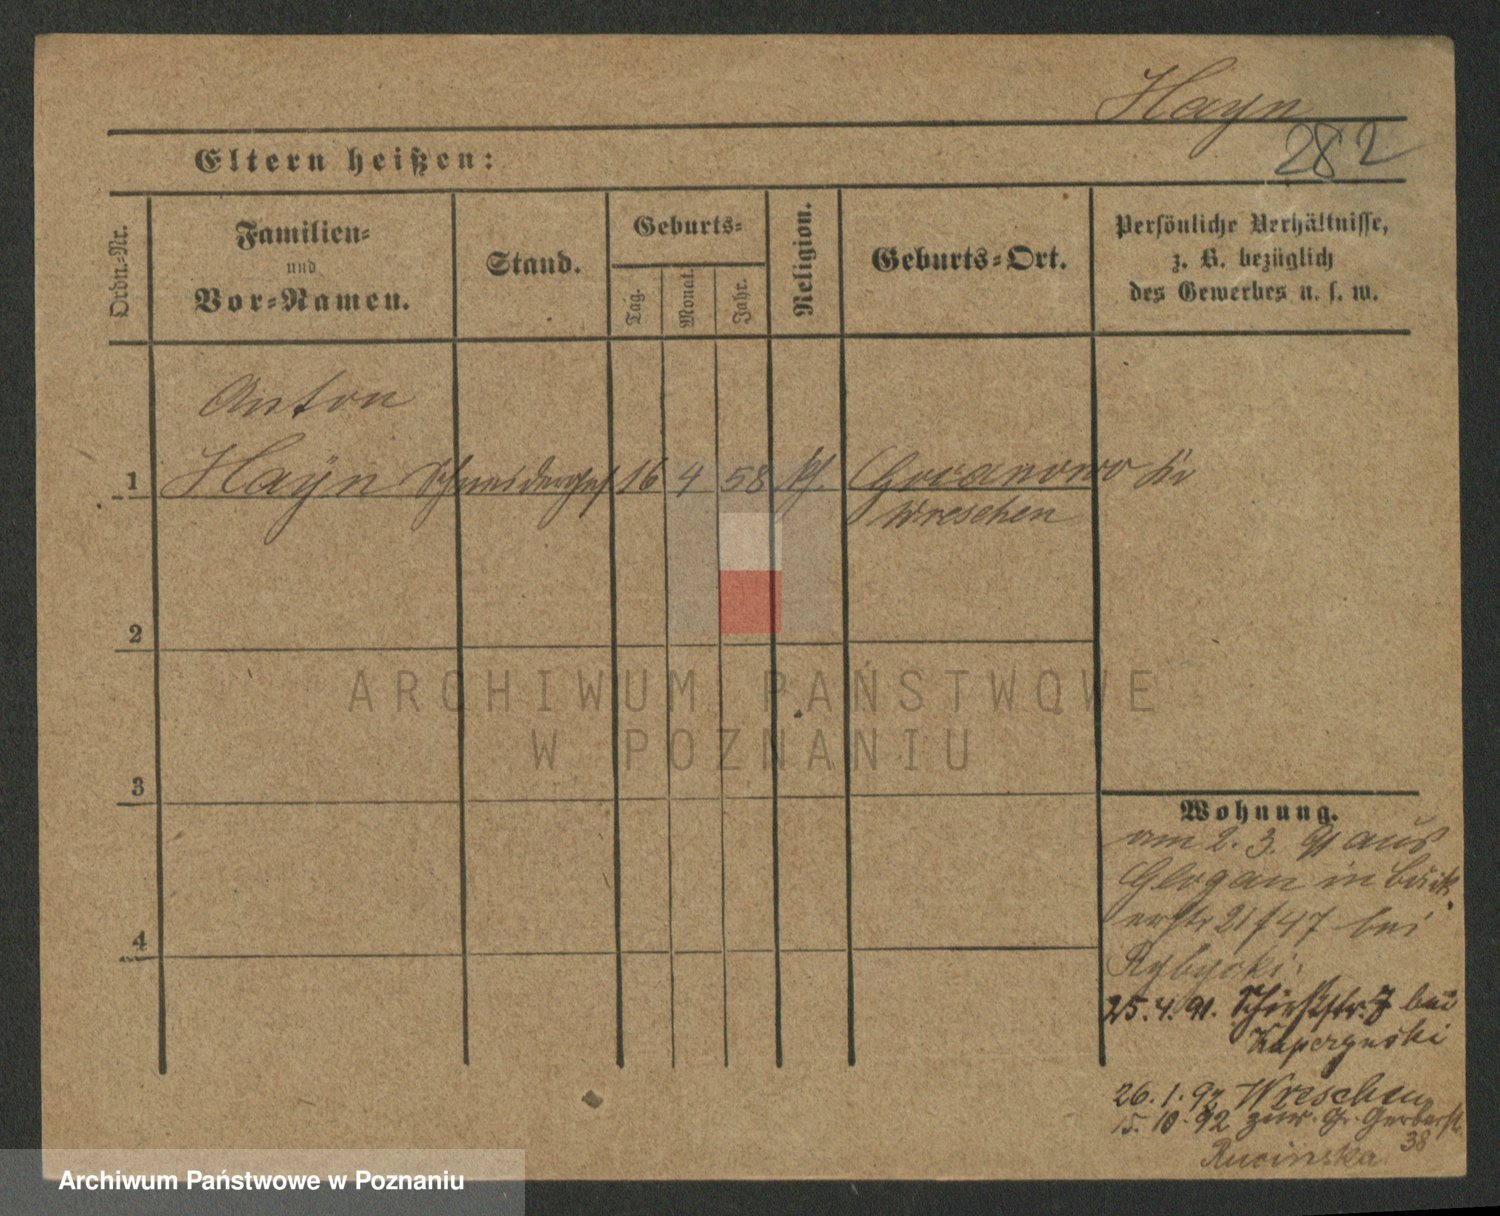 Hayn
282
Eltern heißen:
Ordn.-Nr.
Familien-
und
Vor-Namen.
Stand.
Geburts-
Tag.
Monat.
Jahr.
Religion.
Geburts-Ort.
Persönliche Verhältnisse,
z. B. bezüglich
des Gewerbes u. s. w.
Anton
1 Hayn Schneiderges 16 4 58 kf. Gozanowo Kr
Wreschen
2
ARCHIWUM PAŃSTWOWE
W POZNANIU
3
4
Wohnung.
am 2. 3. 91 aus
Glogau in Bütt
21/47 bei
Rybycki.
25. 4. 91. 7 bei
Kaperynski
26. 1. 92 Wreschen
15. 10. 92 zur. Gr. Gerberst.
38
Rucinska
Archiwum Państwowe w Poznaniu